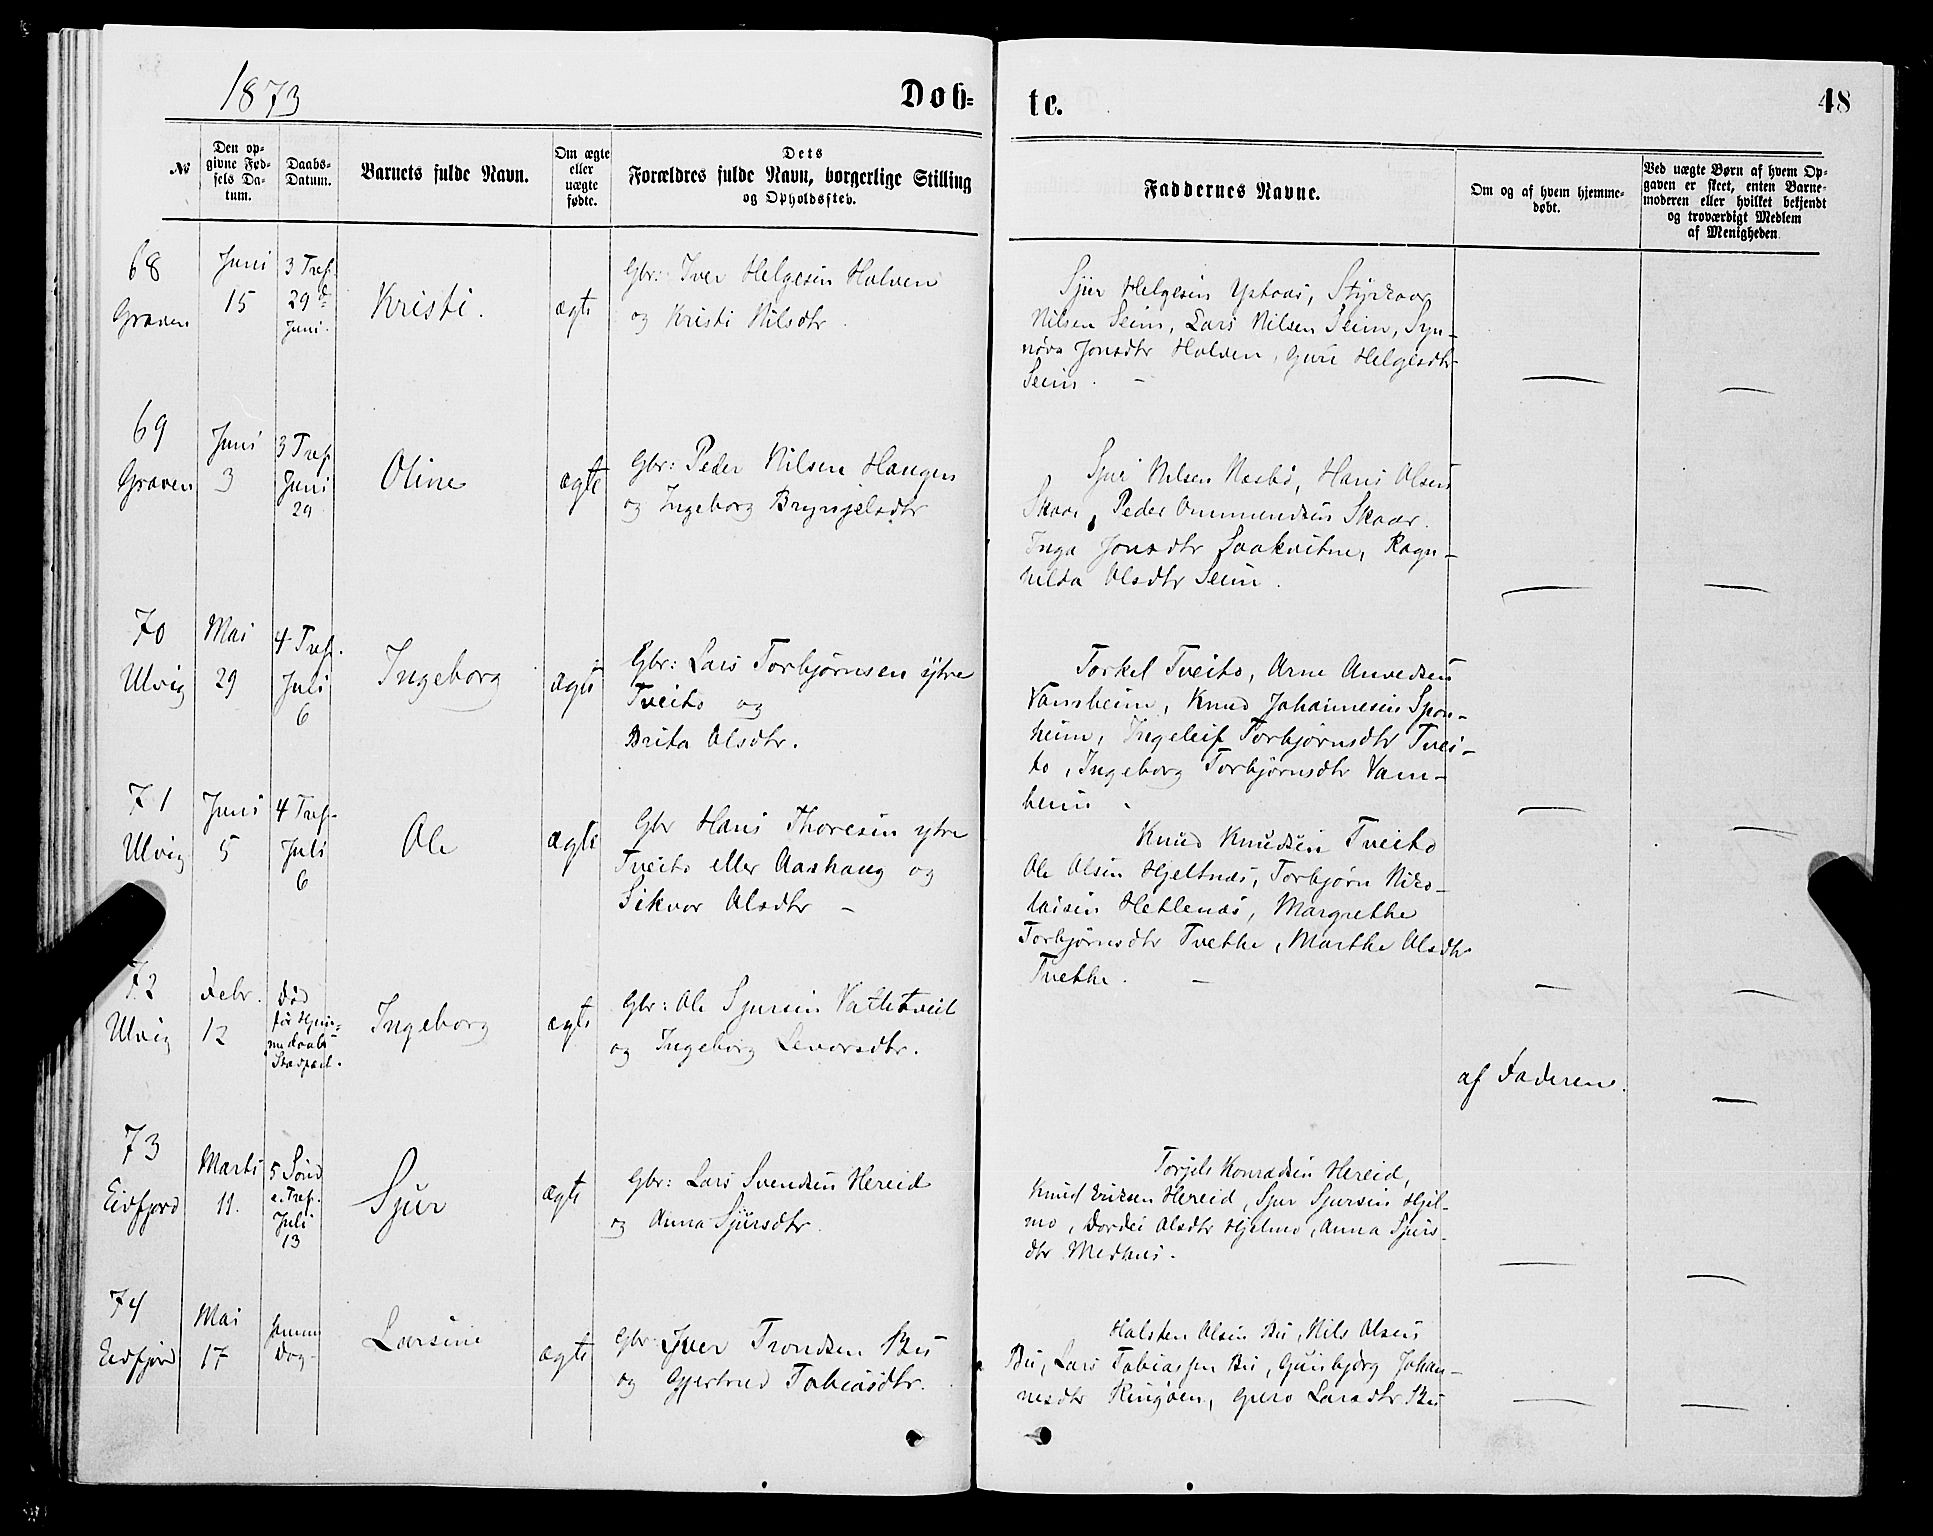 1873
Døb-
te.
48
№
Den op-
givne Fød-
sels Da-
tum.
Daabs-
Datum.
Barnets fulde Navn.
Om ægte
eller
uægte
fødte.
Dets
Forældres fulde Navn, borgerlige Stilling
og Opholdssted.
Faddernes Navne.
Om og af hvem hjemme-
døbt.
Ved uægte Børn af hvem Op-
gaven er skeet, enten Barne-
moderen eller hvilket bekjendt
og troværdigt Medlem
af Menigheden.
68
Graven
Juni
15
3 Tref.
29 d
Juni.
Kristi.
ægte
Gbr: Iver Helgesen Holven
og Kristi Nilsdtr.
Sjur Helgesen Ystaas, Styrkaar
Nilsen Seim, Lars Nilsen Seim, Syn-
nøva Jonsdtr Holven, Guri Helgesdtr
Seim. —
69
Graven
Juni
3
3 Tref
Juni
29
Oline
ægte
Gbr: Peder Nilsen Haugen
og Ingeborg Brynjelsdtr
Sjur Nilsen Nesbø, Hans Olsen
Skaar, Peder Ommundsen Skaar.
Inga Jonsdtr Saakvitne, Ragn-
hilda Olsdtr Seim.
70
Ulvig
Mai
29
4 Tref.
Juli
6
Ingeborg
ægte
Gbr: Lars Torbjørnsen ytre
Tveito og
Brita Olsdtr.
Torkel Tveito, Arne Anvedsen
Vamheim, Knud Johannesen Spon-
heim, Ingeleif Torbjørnsdtr Tvei-
to, Ingeborg Torbjørnsdtr Vam-
heim.
71
Ulvig
Juni
5
4 Tref.
Juli
6
Ole
ægte
Gbr Hans Thoresen ytre
Tveito eller Aashaug og
Sikvor Olsdtr —
Knud Knudsen Tveito
Ole Olsen Hjeltnæs, Torbjørn Niko-
laisen Hetlenæs, Margrethe
Torbjørnsdtr Tvethe, Marthe Olsdtr
Tvethe. —
72
Ulvig
Febr.
12
Død
før Hjem-
medaabs
Stadfæst.
Ingeborg
ægte
Gbr: Ole Sjursen Vatletveit
og Ingeborg Levorsdtr.
af Faderen.
73
Eidfjord
Marts
11.
5 Sønd
e. Tref.
Juli
13
Sjur
ægte
Gbr: Lars Svendsen Hereid
og Anna Sjursdtr.
Torjels Konradsen Hereid,
Knud Eriksen Hereid, Sjur Sjursen Hjel-
mo, Dordei Olsdtr Hjelmo, Anna Sjurs-
dtr Medhus.
74
Eidfjord
Mai
17
Samme
Dag
Larsine
ægte
Gbr Iver Trondsen Bu
og Gjertrud Tobiasdtr.
Halsten Olsen Bu, Nils Olsen
Bu, Lars Tobiassen Bu, Gunbjørg Johan-
nesdtr Ringøen, Guro Larsdtr Bu